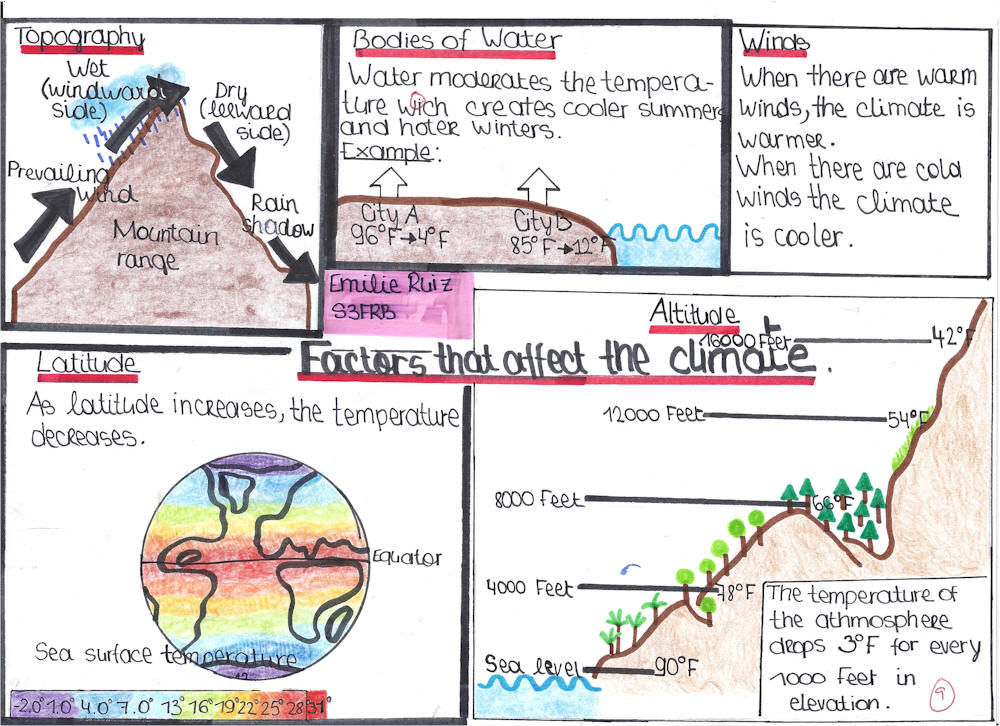 Topography
Wet
(windward
side)
Dry
(leeward
side)
Prevailing
wind
Rain
shadow
Mountain
range
Bodies of Water
Water moderates the tempera-
ture wich creates cooler summers
and hoter winters.
Example:
City A
96°F→4°F
City B
85°F→12°F
Winds
When there are warm
winds, the climate is
warmer.
When there are cold
winds the climate
is cooler.
Emilie Ruiz
S3FRB
Factors that affect the climate.
Latitude
As latitude increases, the temperature
decreases.
Equator
Sea surface temperature
-2.0° 1.0° 4.0° 7.0° 13° 16° 19° 22° 25° 28° 31°
Altitude
16000 Feet 42°F
12000 Feet 54°F
8000 Feet 66°F
4000 Feet 78°F
Sea level 90°F
The temperature of
the athmosphere
drops 3°F for every
1000 Feet in
elevation.
9